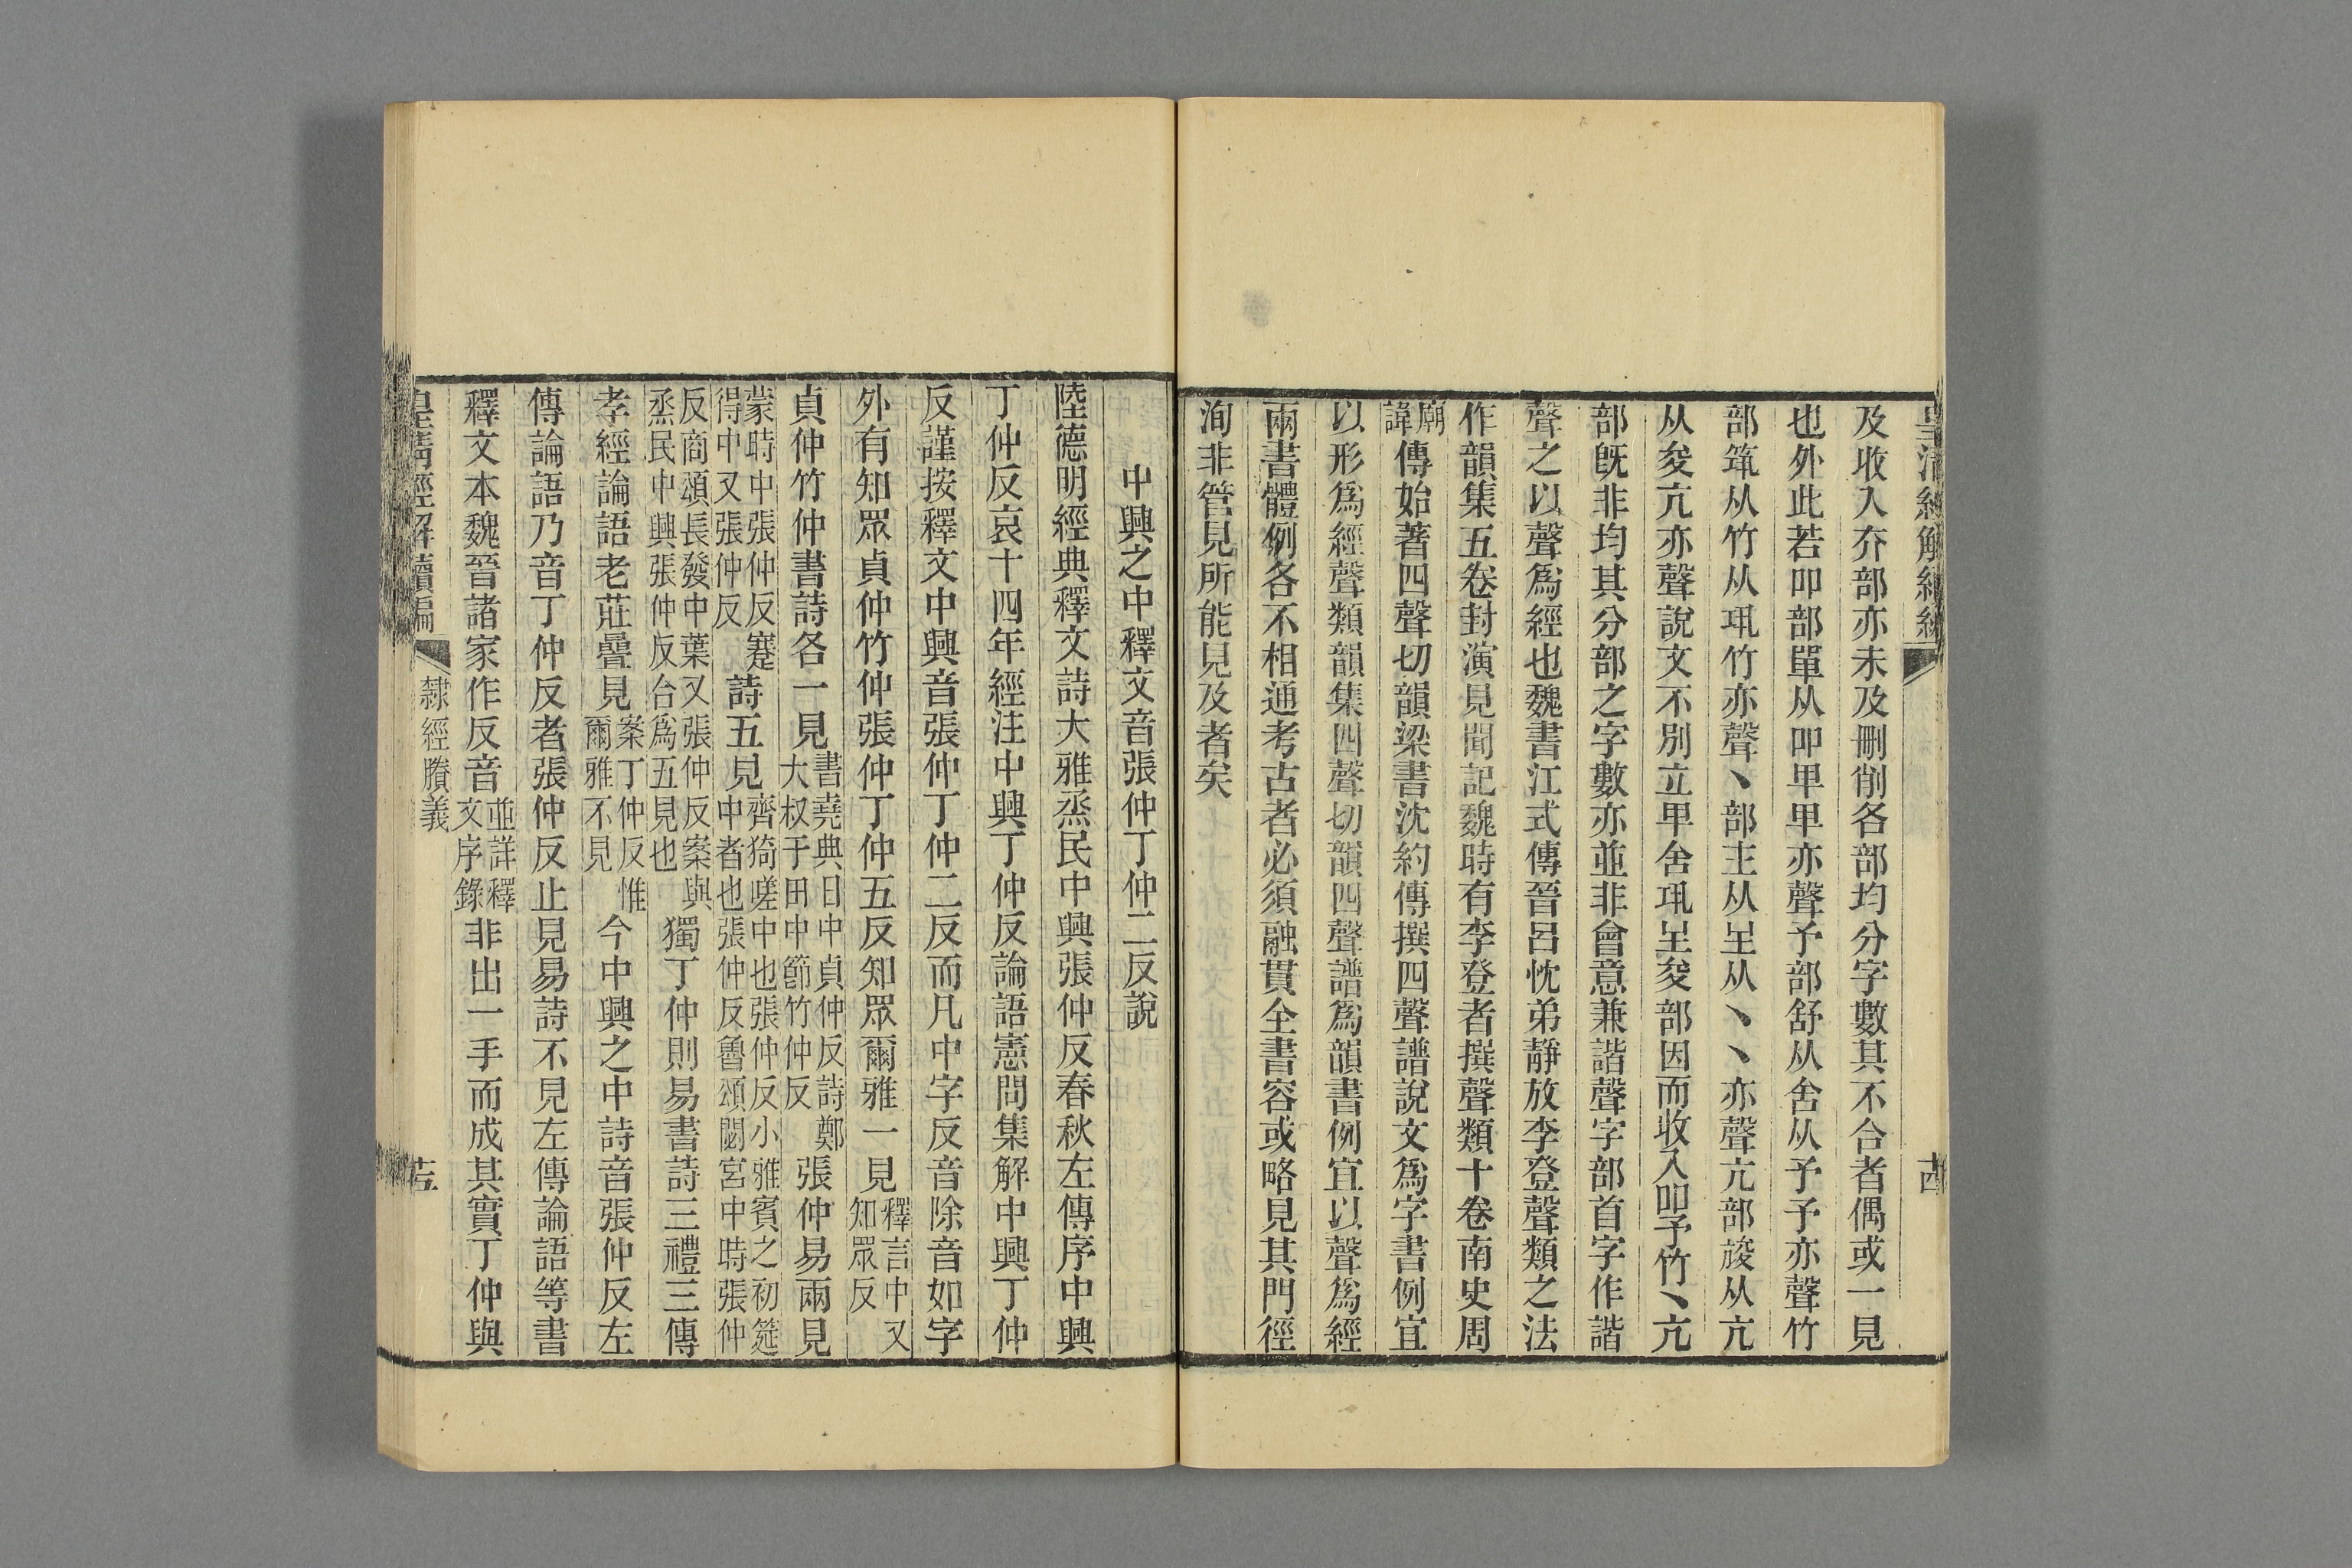 皇清經解續編
十四
及收入夰部亦未及刪削各部均分字數其不合者偶或一見
也外此若吅部單从吅甲甲亦聲予部舒从舍从予予亦聲竹
部筑从竹从巩竹亦聲丶部主从㞷从丶丶亦聲亢部䇓从亢
从夋亢亦聲說文不別立甲舍巩㞷夋部因而收入吅予竹丶亢
部旣非均其分部之字數亦並非會意兼諧聲字部首字作諧
聲之以聲爲經也魏書江式傳晉呂忱弟靜放李登聲類之法
作韻集五卷封演見聞記魏時有李登者撰聲類十卷南史周
廟諱傳始著四聲切韻梁書沈約傳撰四聲譜說文爲字書例宜
以形爲經聲類韻集四聲切韻四聲譜爲韻書例宜以聲爲經
兩書體例各不相通考古者必須融貫全書容或略見其門徑
洵非管見所能見及者矣
中興之中釋文音張仲丁仲二反說
陸德明經典釋文詩大雅烝民中興張仲反春秋左傳序中興
丁仲反哀十四年經注中興丁仲反論語憲問集解中興丁仲
反謹按釋文中興音張仲丁仲二反而凡中字反音除音如字
外有知眾貞仲竹仲張仲丁仲五反知眾爾雅一見釋言中又知眾反
貞仲竹仲書詩各一見書堯典日中貞仲反詩鄭大叔于田中節竹仲反張仲易兩見
蒙時中張仲反蹇得中又張仲反詩五見齊猗嗟中也張仲反小雅賓之初筵中者也張仲反魯頌閟宮中時張仲
反商頌長發中葉又張仲反案與烝民中興張仲反合爲五見也獨丁仲則易書詩三禮三傳
孝經論語老莊疊見案丁仲反惟爾雅不見今中興之中詩音張仲反左
傳論語乃音丁仲反者張仲反止見易詩不見左傳論語等書
釋文本魏晉諸家作反音並詳釋文序錄非出一手而成其實丁仲與
皇清經解續編
隸經賸義
十五